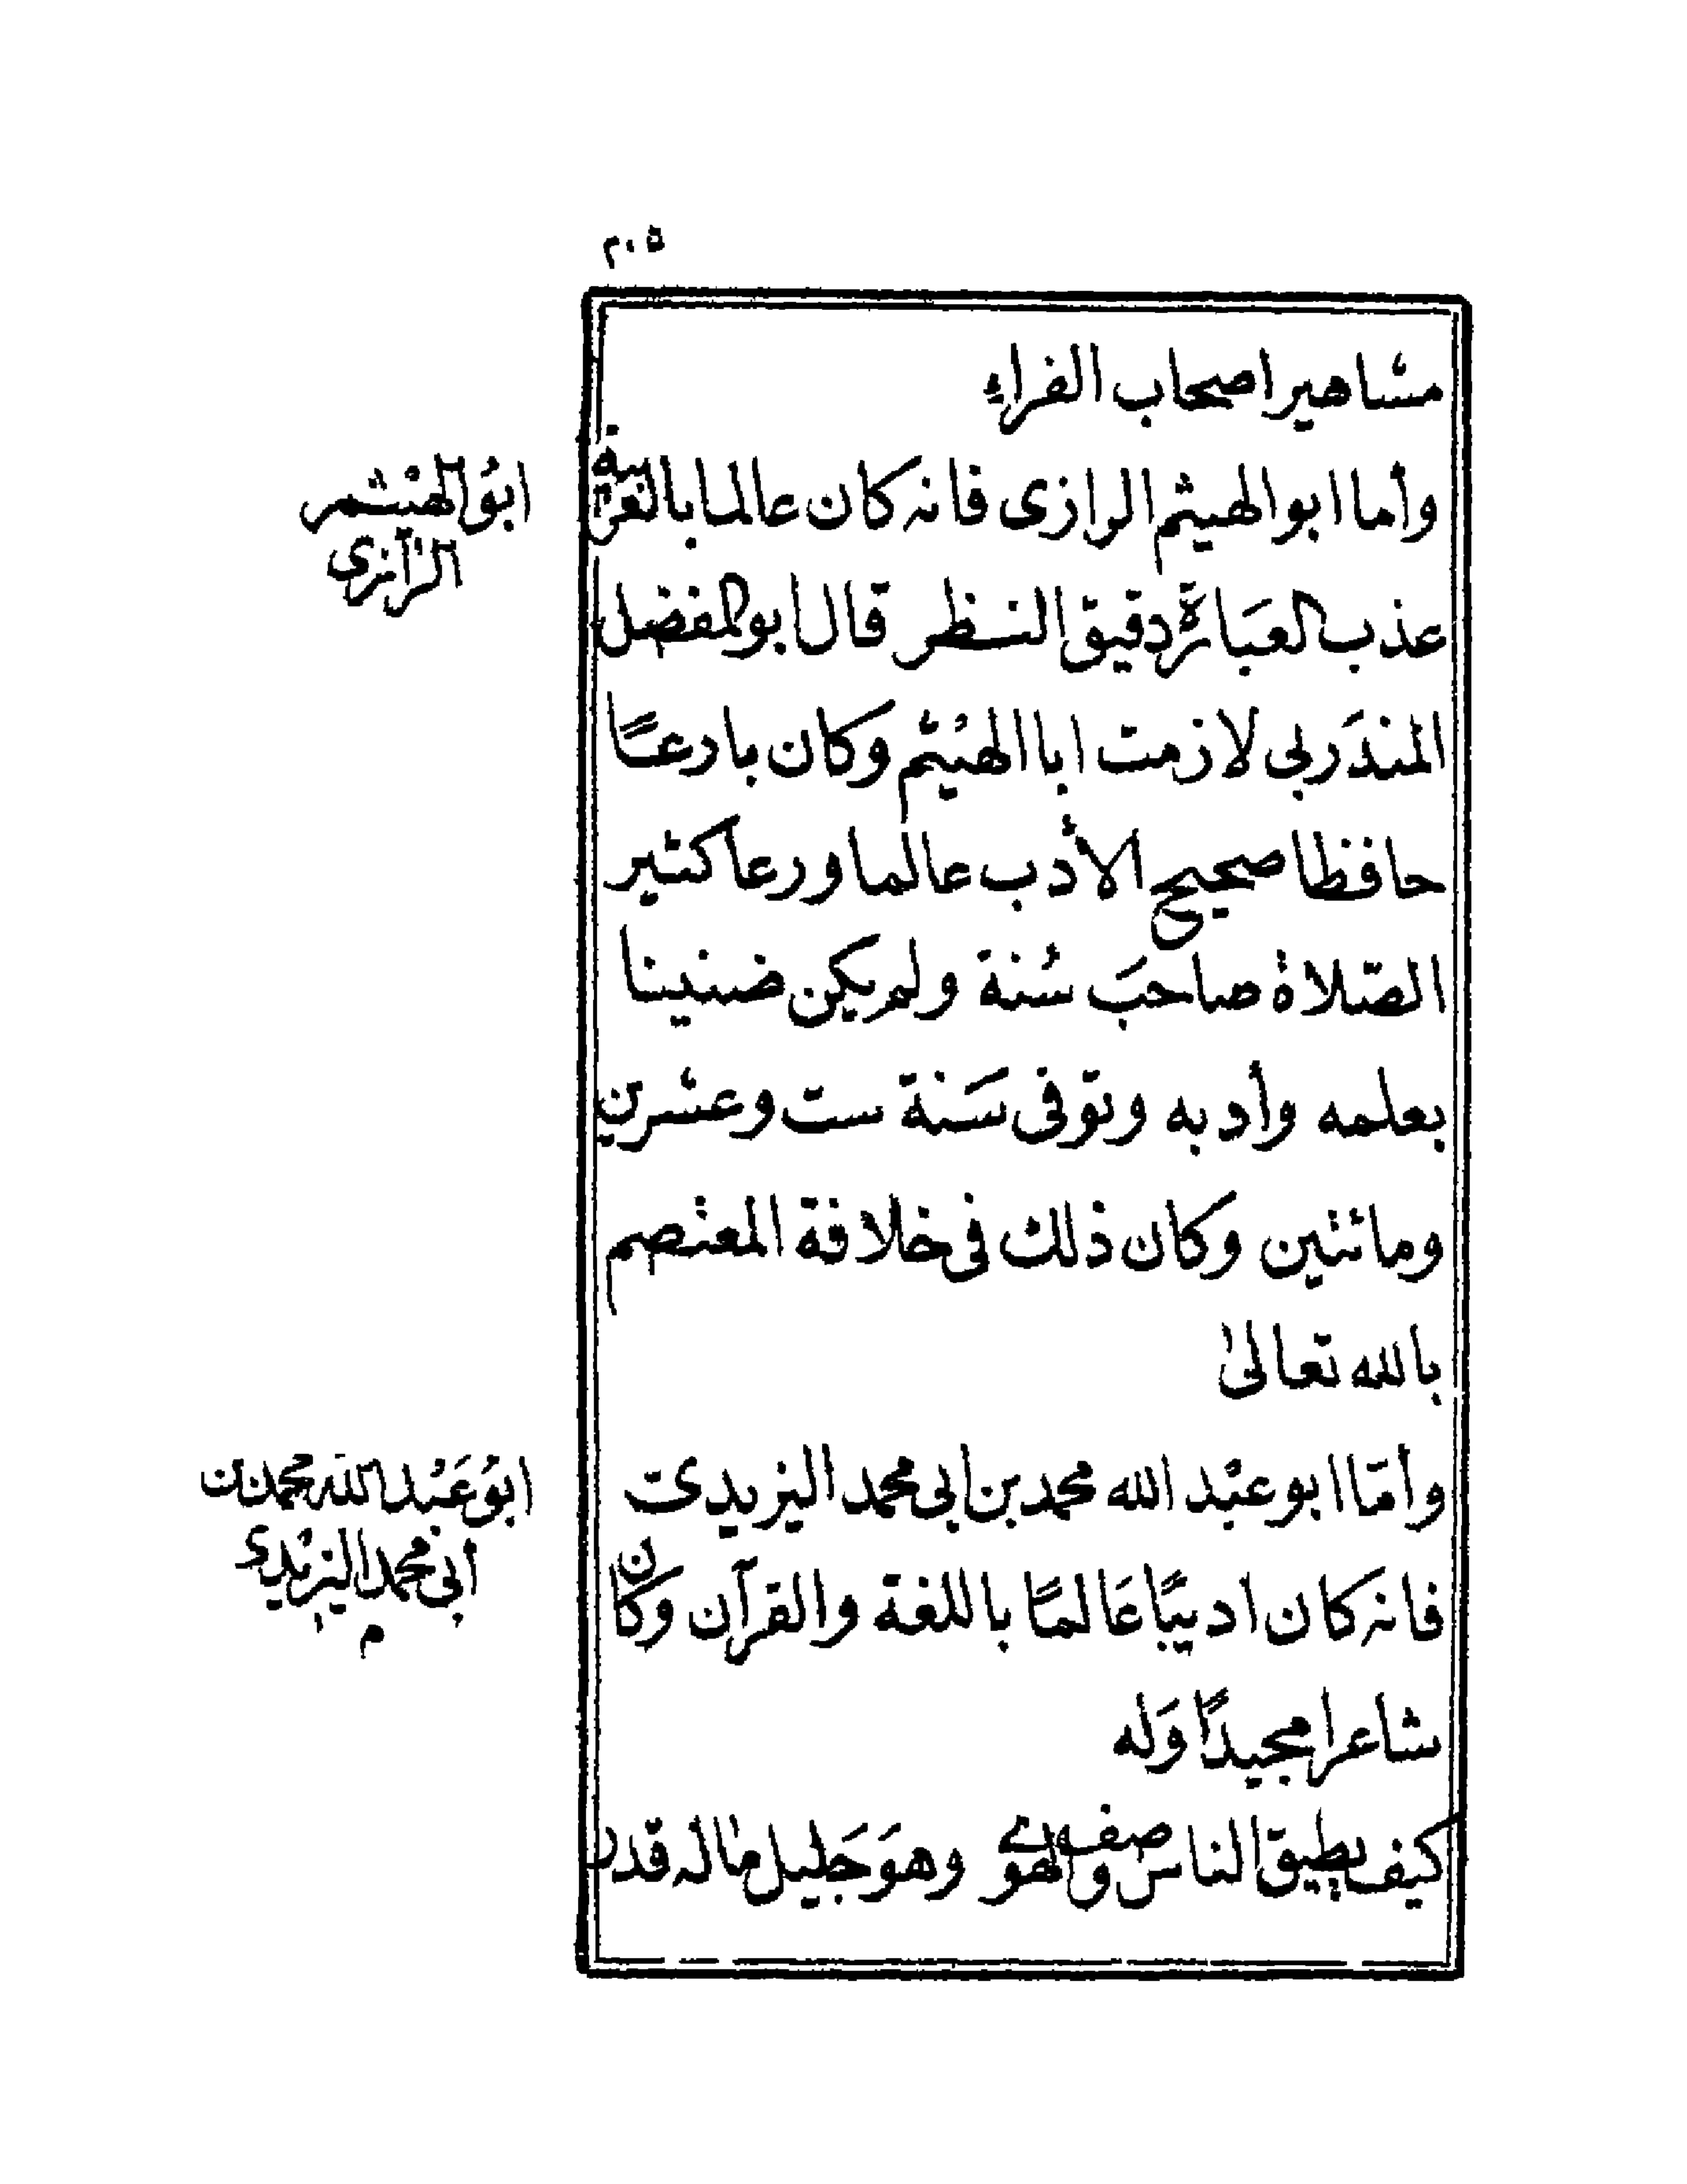 ٢٠٥
مشاهير اصحاب الفراءِ
وأما ابو الهيثم الرازى فانه كان عالما بالعربية
ابوُ الهيْثم
الرّازى
عذب العبَارة دقيق النظر قال ابو المفضل
المنذَربى لازمت ابا الهيْثم وكان بادرعًا
حافظا صحيح الأدب عالما ورعا كثير
الصّلاة صاحبَ سُنة ولم يكن ضنينا
بعلمه وأدبه وتوفى سَنة ست وعشرين
ومائتين وكان ذلك فى خلافة المعتصم
بالله تعالىٰ
وأمّا ابو عبْد الله محمد بن ابى محمد اليزيدى
ابوُ عَبْد الله محمد بن
أبى محمد اليزيْدى
م
فانه كان اديبًا عَالمًا باللغة والقرآن وكان
شاعرا مجيدًا وَله
كيف يطيق الناس وصف الهوى وهوَ جَليل مٰاله قدر